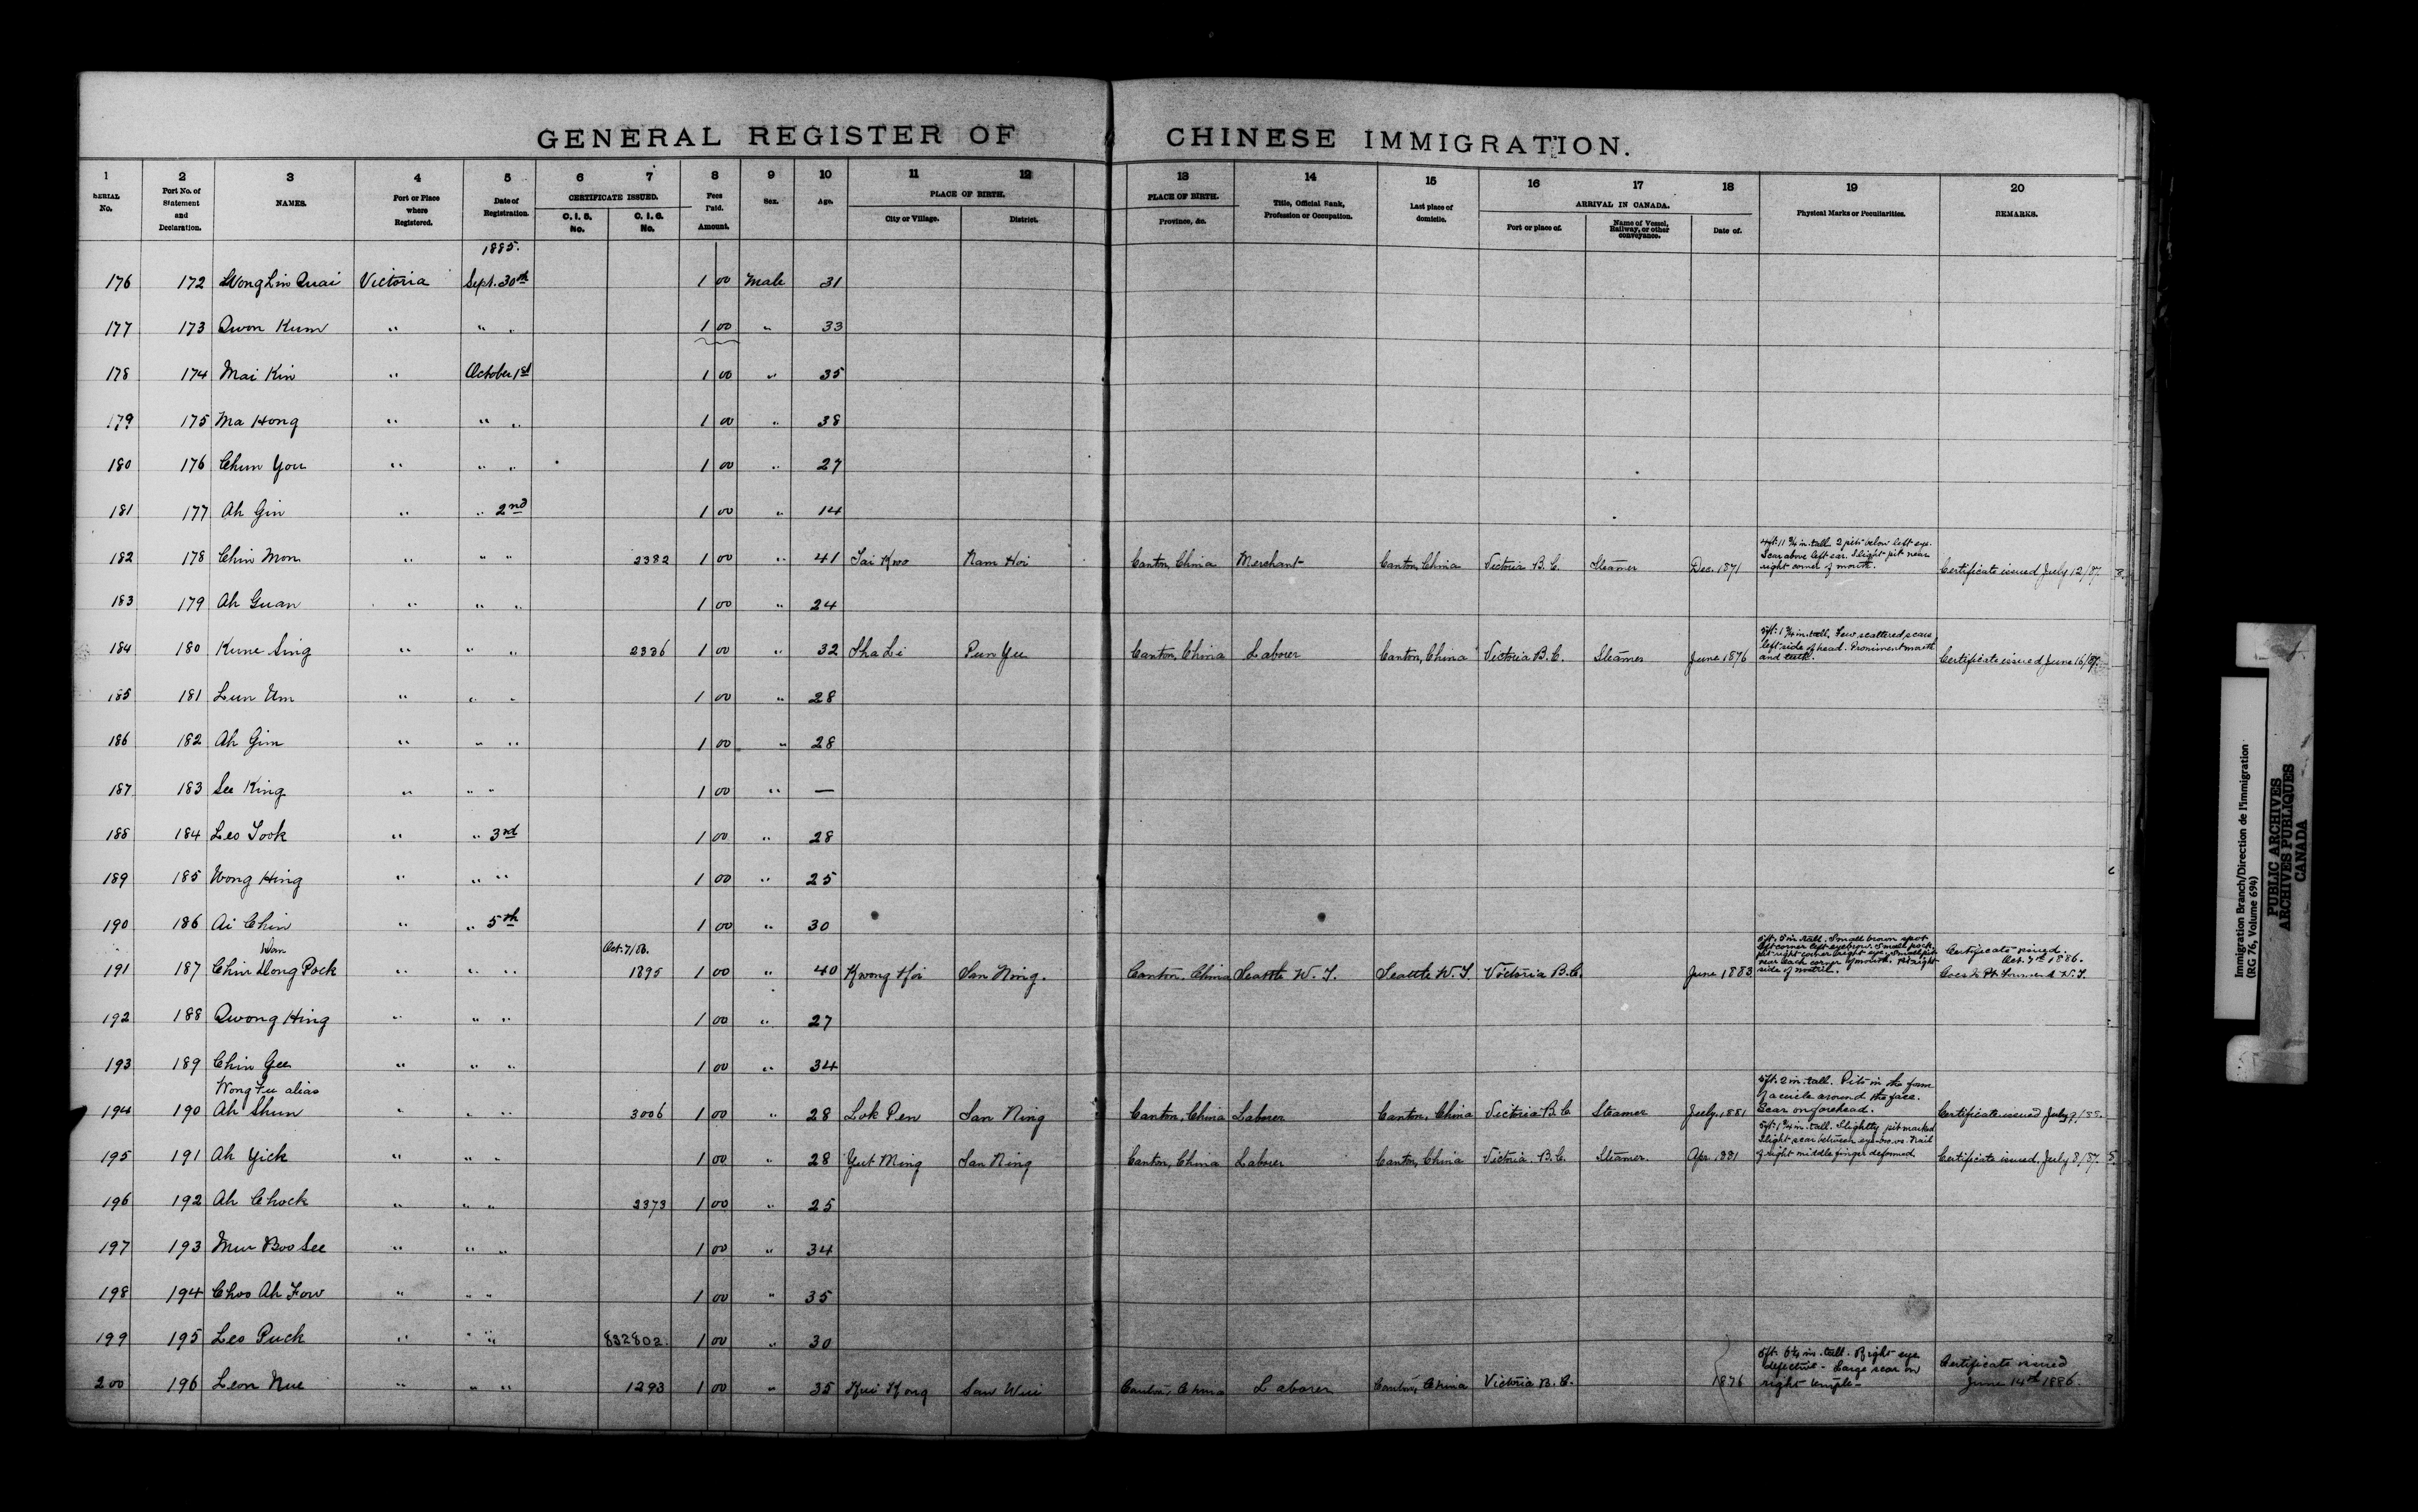 GENERAL REGISTER OF CHINESE IMMIGRATION.
1 2 3 4 5 6 7 8 9 10 11 12 13 14 15 16 17 18 19 20
SERIAL No. Port No. of Statement and Declaration. NAMES. Port or Place where Registered. Date of Registration. CERTIFICATE ISSUED. C. I. 5. No. C. I. 6. No. Fees Paid. Amount. Sex. Age. PLACE OF BIRTH. City or Village. District. PLACE OF BIRTH. Province, &c. Title, Official Rank, Profession or Occupation. Last place of domicile. ARRIVAL IN CANADA. Port or place of. Name of Vessel, Railway, or other conveyance. Date of. Physical Marks or Peculiarities. REMARKS.
1885.
176 172 Wong Lin Quai Victoria Sept. 30th 1 00 Male 31
177 173 Qwon Kum " " " 1 00 " 33
178 174 Mai Kin " October 1st 1 00 " 35
179 175 Ma Hong " " " 1 00 " 38
180 176 Chun You " " " 1 00 " 27
181 177 Ah Gin " " 2nd 1 00 " 14
182 178 Chin Mon " " " 2382 1 00 " 41 Tai Kwo Nam Hoi Canton, China Merchant Canton, China Victoria B.C. Steamer Dec. 1871 4ft: 11 3/4 in. tall. 2 pits below left eye. Scar above left ear. Slight pit near right corner of mouth. Certificate issued July 12/87.
183 179 Ah Guan " " " 1 00 " 24
184 180 Kune Sing " " " 2336 1 00 " 32 Sha Li Pun Yu Canton, China Laborer Canton, China Victoria B.C. Steamer June 1876 5ft: 1 3/4 in. tall. Few scattered scars left side of head. Prominent mouth and teeth. Certificate issued June 16/87.
185 181 Lun Um " " " 1 00 " 28
186 182 Ah Gim " " " 1 00 " 28
187 183 See King " " " 1 00 " —
188 184 Leo Took " " 3rd 1 00 " 28
189 185 Wong Hing " " " 1 00 " 25
190 186 Ai Chin " " 5th 1 00 " 30
Wan Oct. 7/86.
191 187 Chin Dong Pock " " " 1895 1 00 " 40 Kwong Hoi San Ning. Canton, China Seattle W. T. Seattle W. T. Victoria B.C. June 1883 5ft. 5 in. tall. Small brown spot left corner left eyebrow. Small pock pit right corner right eye. Small pits near each corner of mouth. Pit right side of nostril. Certificate issued. Oct. 7th 1886. Goes to Pt. Townsend W.T.
192 188 Qwong Hing " " " 1 00 " 27
193 189 Chin Gee " " " 1 00 " 34
Wong Fu alias
194 190 Ah Shun " " " 3006 1 00 " 28 Lok Pen San Ning Canton, China Laborer Canton, China Victoria B.C Steamer July. 1881 5ft. 2 in. tall. Pits in the form of a circle around the face. Scar on forehead. Certificate issued July 9/88.
195 191 Ah Yick " " " 1 00 " 28 Yut Ming San Ning Canton, China Laborer Canton, China Victoria. B.C. Steamer Apr. 1881 5ft. 1 3/4 in. tall. Slightly pit marked Slight scar between eye-brows. Nail of right middle finger deformed. Certificate issued. July 8/87.
196 192 Ah Chock " " " 2373 1 00 " 25
197 193 Mur Boo See " " " 1 00 " 34
198 194 Choo Ah Fow " " " 1 00 " 35
199 195 Leo Puck " " " 832802. 1 00 " 30
200 196 Leon Nue " " " 1293 1 00 " 35 Kui Kong San Wui Canton, China Laborer Canton, China Victoria B.C. 1876 5ft. 6 1/4 in. tall. Right eye defective - Large scar on right temple - Certificate issued June 14th 1886.
Immigration Branch/Direction de l'immigration
(RG 76, Volume 694)
PUBLIC ARCHIVES
ARCHIVES PUBLIQUES
CANADA